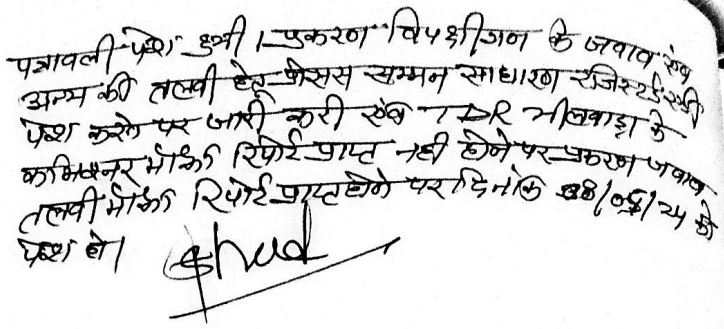 पत्रावली पेश हुयी । प्रकरण विपक्षीगण के जवाब एंव
अन्य की तलवी हेतु प्रोसस सम्मन साधारण रजिस्टर्ड
पेश करने पर जारी करी एंव TDR भीलवाड़ा के
कमिश्नर मौका रिपोर्ट प्राप्त नही होने पर प्रकरण जवाब
तलवी मौका रिपोर्ट प्राप्त होने पर दिनांक /24 को
पेश हो ।